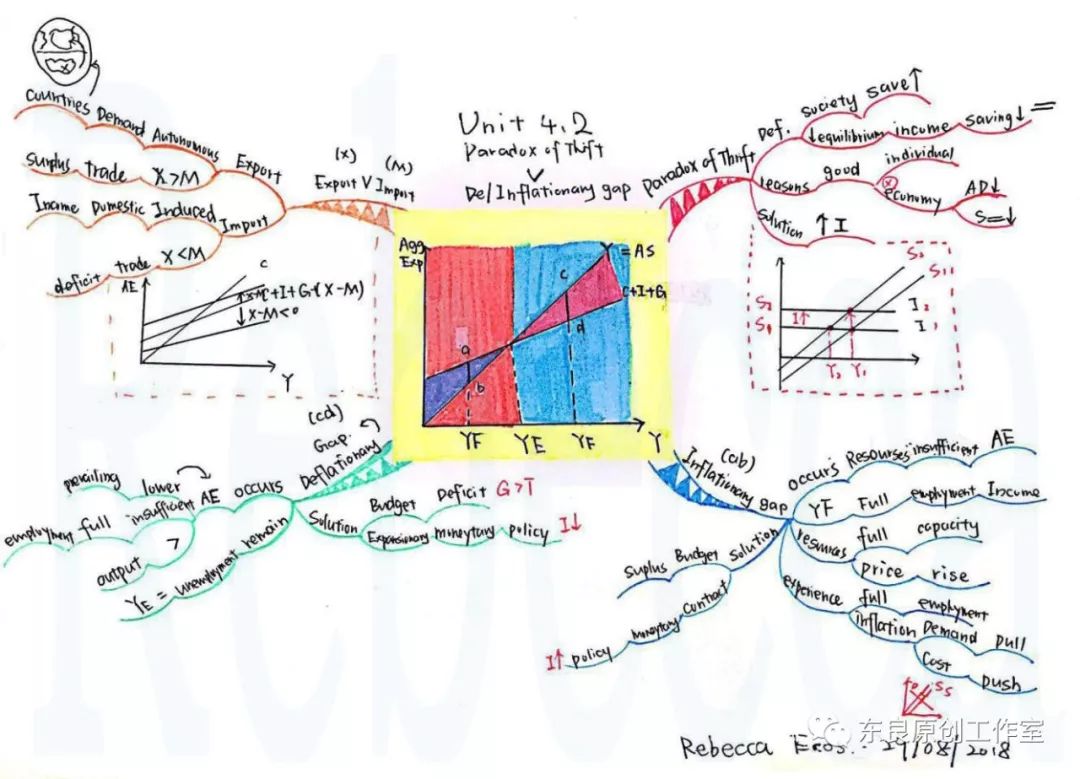 Unit 4.2
Paradox of Thift
De/Inflationary gap
(X) (M)
Export V Import
Export
Countries Demand Autonomous
surplus trade X>M
Import
Income Dumestic Induced
deficit trade X<M
AE
C
C+I+G+(X-M)
X-M<0
Y
Paradox of Thrift
Def.
society save↑
↓equilibrium income saving↓ =
reasons good individual
economy AD↓
S=↓
Solution ↑I
S₂ S₁
S₂ I↑ I₂
S₁ I₁
Y₂ Y₁
Agg Exp
Y = AS
C+I+G
a
b
c
d
YF YE YF Y
(cd)
Deflationary Gap
occurs AE
lower prevailing
insufficient full employment
> output
YE = unemployment remain
Solution
Budget Deficit G>T
Expansionary moneytary policy I↓
(ab)
Inflationary gap
occurs Resourses insufficient AE
YF Full employment Income
resources full capacity
price rise
experience full employment
inflation Demand pull
Cost push
S S
solution Budget Suplus
contract moneytary policy I↑
东良原创工作室
Rebecca
08/2018